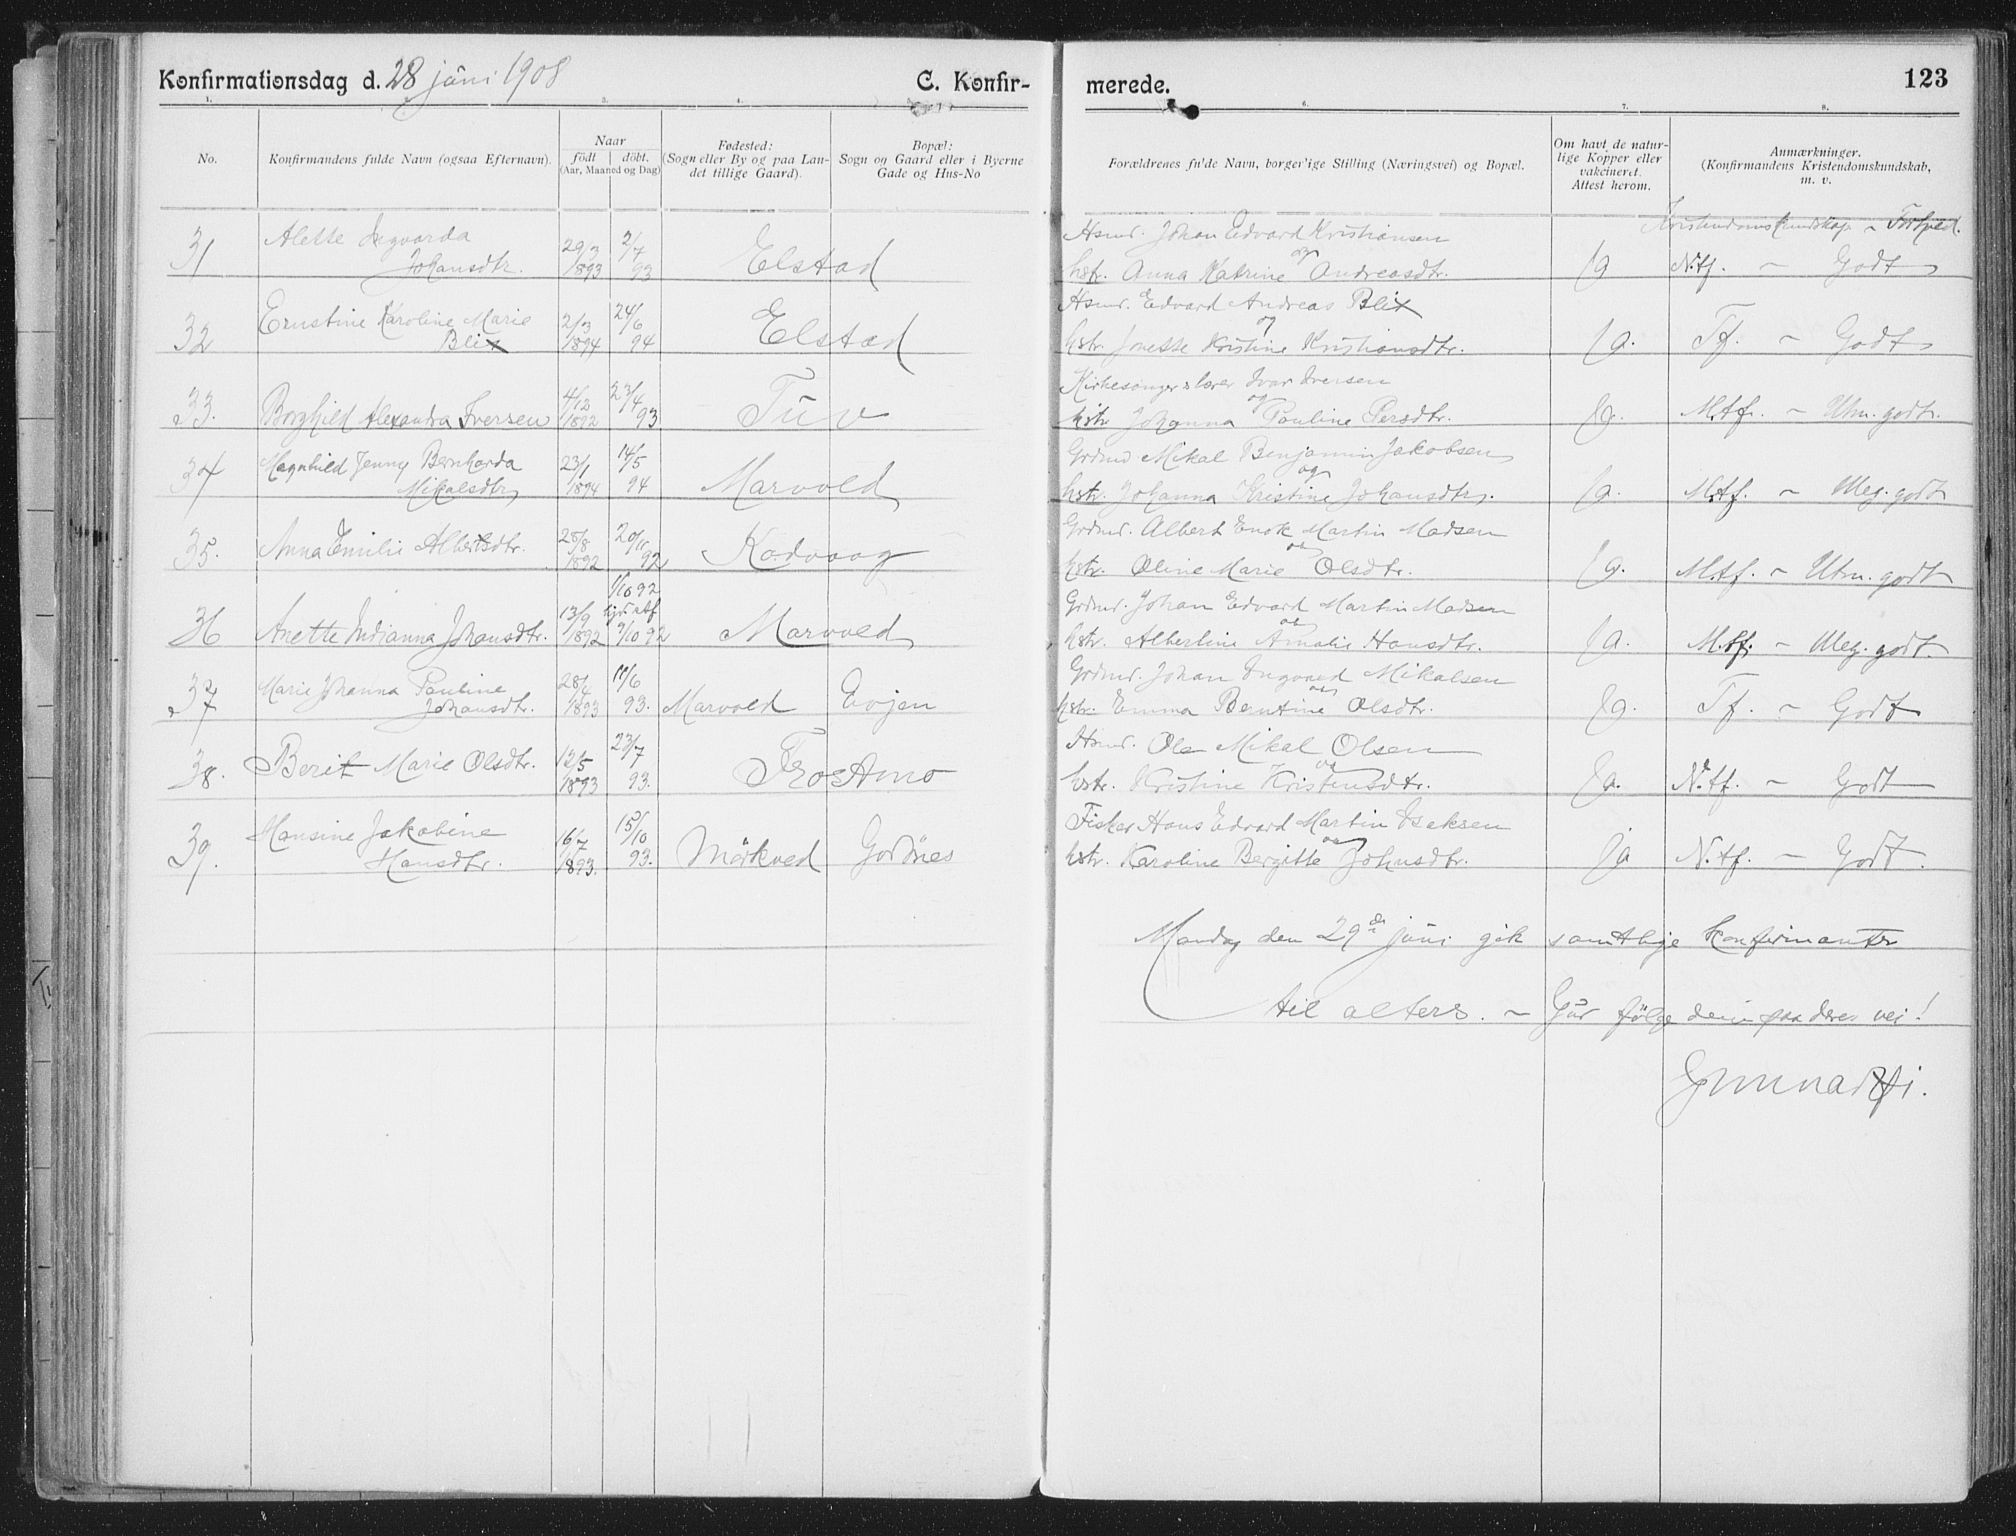 Konfirmationsdag d. 28 juni 1908
C. Konfir-
merede.
123
No.
Konfirmandens fulde Navn (ogsaa Efternavn).
Naar
födt | döbt.
(Aar, Maaned og Dag)
Fødested:
(Sogn eller By og paa Lan-
det tillige Gaard).
Bopæl:
Sogn og Gaard eller i Byerne
Gade og Hus-No
Forældrenes fulde Navn, borgerlige Stilling (Næringsvei) og Bopæl.
Om havt de natur-
lige Kopper eller
vakcineret.
Attest herom.
Anmærkninger.
(Konfirmandens Kristendomskundskab,
m. v.
Kristendomskundskap ~ Forhold.
31 Alette Ingvarda
Johansdtr. 29/3 1893 2/7 93 Elstad
Hsmd. Johan Edvard Kristiansen
og
hstr. Anna Katrine Andreasdtr. ja N.tf. ~ Godt
32 Ernstine Karoline Marie
Blix 2/3 1894 24/6 94 Elstad
Hsmd. Edvard Andreas Blix
og
hstr. Jonette Kristine Kristiansdtr. ja. Tf. ~ Godt
33. Borghild Alexandra Iversen 4/12 1892 23/4 93 Tuv
Kirkesanger & lærer Ivar Iversen
og
hstr. Johanna Pauline Persdtr. ja. M.tf. ~ Utm. godt.
34 Magnhild Jenny Bernharda
Mikalsdtr 23/1 1894 14/5 94 Marvold
Grdmd Mikal Benjamin Jakobsen
og
hstr. Johanna Kristine Johansdtr. ja. M.tf. ~ Meg. godt
35. Anna Emilie Albertsdtr. 28/8 1892 20/11 92 Kodvaag
Grdmd. Albert Enok Martin Madsen
og
hstr. Oline Marie Olsdtr. ja. M.tf. ~ Utm. godt
36 Anette Indianna Johansdtr. 13/9 1892 1/10 92
9/10 92 Marvold
Grdmd. Johan Edvard Martin Madsen
og
hstr. Albertine Amalie Hansdtr. ja. M.tf. ~ Meg. godt.
37 Marie Johanna Pauline
Johansdtr. 28/4 1893 11/6 93. Marvold Evjen
Grdmd. Johan Ingvard Mikalsen
og
hstr. Emma Bentine Olsdtr. ja. Tf. ~ Godt
38. Berit Marie Olsdtr. 12/5 1893 23/7 93. Frostmo
Hsmd. Ole Mikal Olsen
og
hstr. Kristine Kristensdtr. ja. N.tf. ~ Godt
39. Hansine Jakobine
Hansdtr. 16/7 1893. 15/10 93. Mörkved Godönes
Fisker Hans Edvard Martin Iseksen
og
hstr. Karoline Bergitte Johnsdtr. ja N.tf. ~ Godt.
Mandag den 29de juni gik samtlige konfirmanter
til alters. ~ Gud fölge dem paa deres vei!